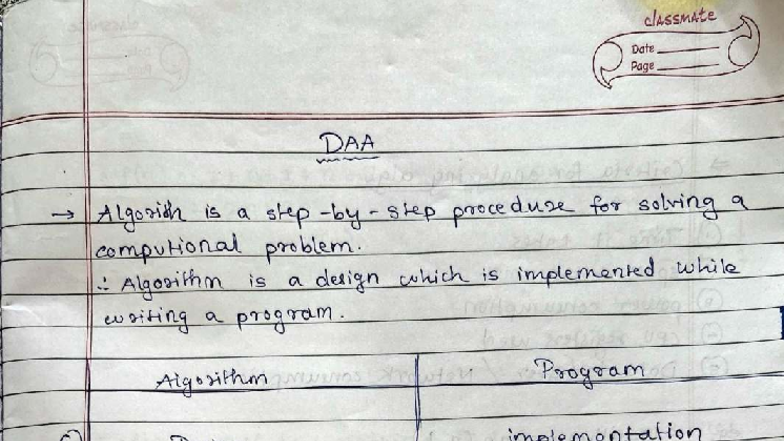 classmate
Date
Page
DAA
→ Algorith is a step-by-step procedure for solving a
computional problem.
∴ Algorithm is a design which is implemented while
writing a program.
Algorithm Program
implementation